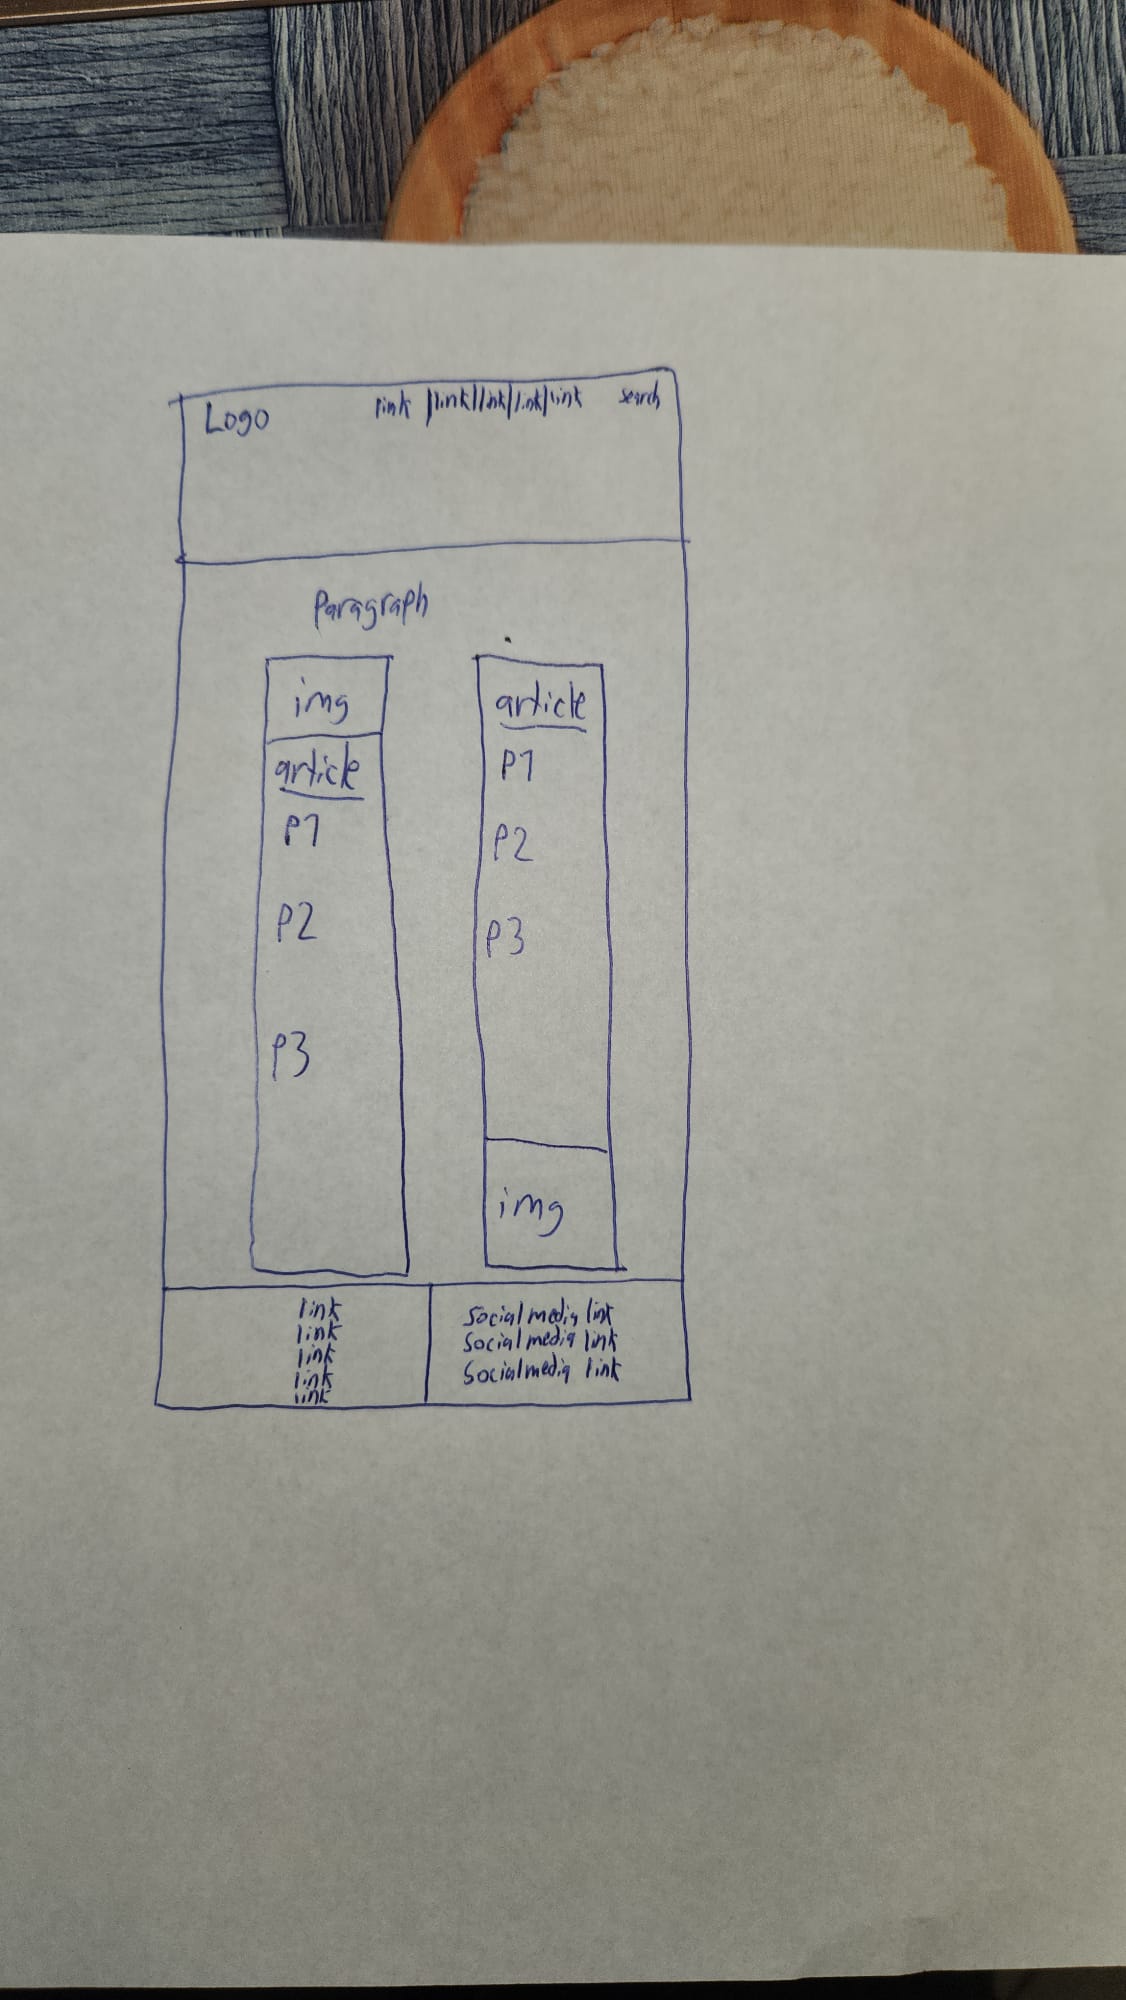 Logo link |link|link|link|link search
Paragraph
img
article
P1
P2
P3
article
P1
P2
P3
img
link
link
link
link
link
Social media link
Social media link
Social media link